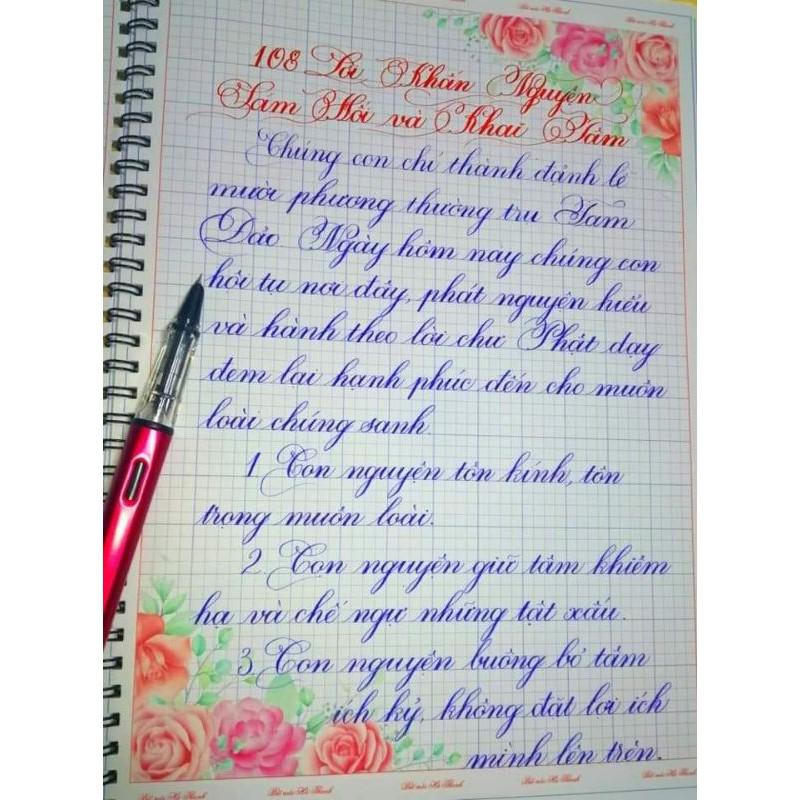 Bút mài Hà Thành
108 Lời Khấn Nguyện
Sám Hối và Khai Tâm
Chúng con chí thành đảnh lễ
mười phương thường trụ Tam
Bảo. Ngày hôm nay chúng con
hội tụ nơi đây, phát nguyện hiểu
và hành theo lời chư Phật dạy
đem lại hạnh phúc đến cho muôn
loài chúng sanh.
1. Con nguyện tôn kính, tôn
trọng muôn loài.
2. Con nguyện giữ tâm khiêm
hạ và chế ngự những tật xấu.
3. Con nguyện buông bỏ tâm
ích kỷ, không đặt lợi ích
mình lên trên.